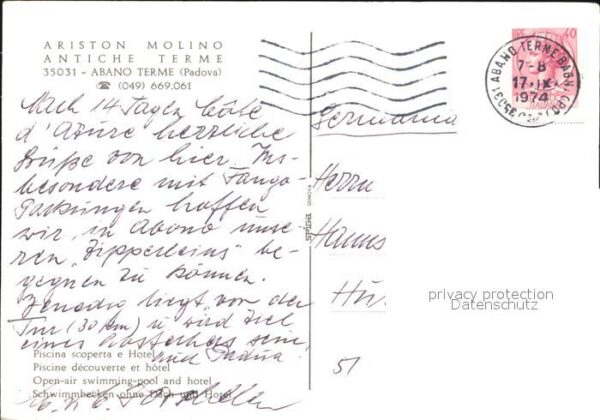 ARISTON MOLINO
ANTICHE TERME
35031 - ABANO TERME (Padova)
☎ (049) 669.061
Nach 14 Tagen Côte
d'Azure herzliche
Grüße von hier. Ins-
besondere mit Fango-
Packungen hoffen
wir, in Abano unse-
ren "Zipperleins" be-
gegnen zu können.
Venedig liegt vor der
Tür (30 km) u. wird Ziel
eines Abstechers sein,
und Padua!
Piscina scoperta e Hotel
Piscine découverte et hôtel
Open-air swimming-pool and hotel
Schwimmbecken ohne Dach und Hotel
LIRE 40
35031 ABANO TERME BAGNI (PD)
7-8
17·IX
1974
Germania
Herrn
Hanns
Hü
51
GENOVA
privacy protection
Datenschutz